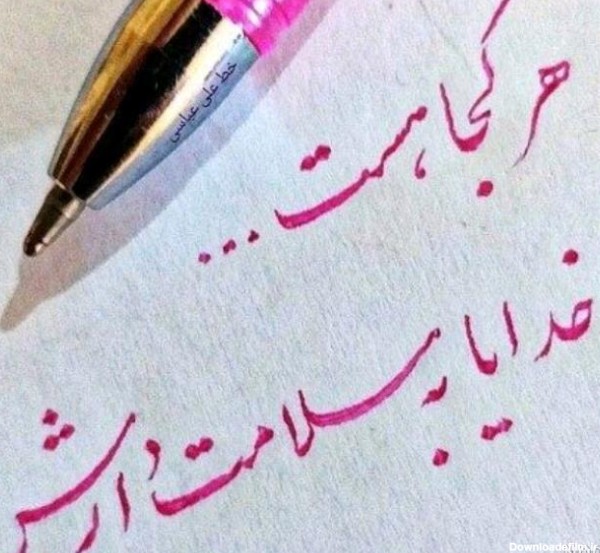 هر کجا هست ...
خدایا به سلامت دارش
خط علی عباسی
Downloadafilm.ir